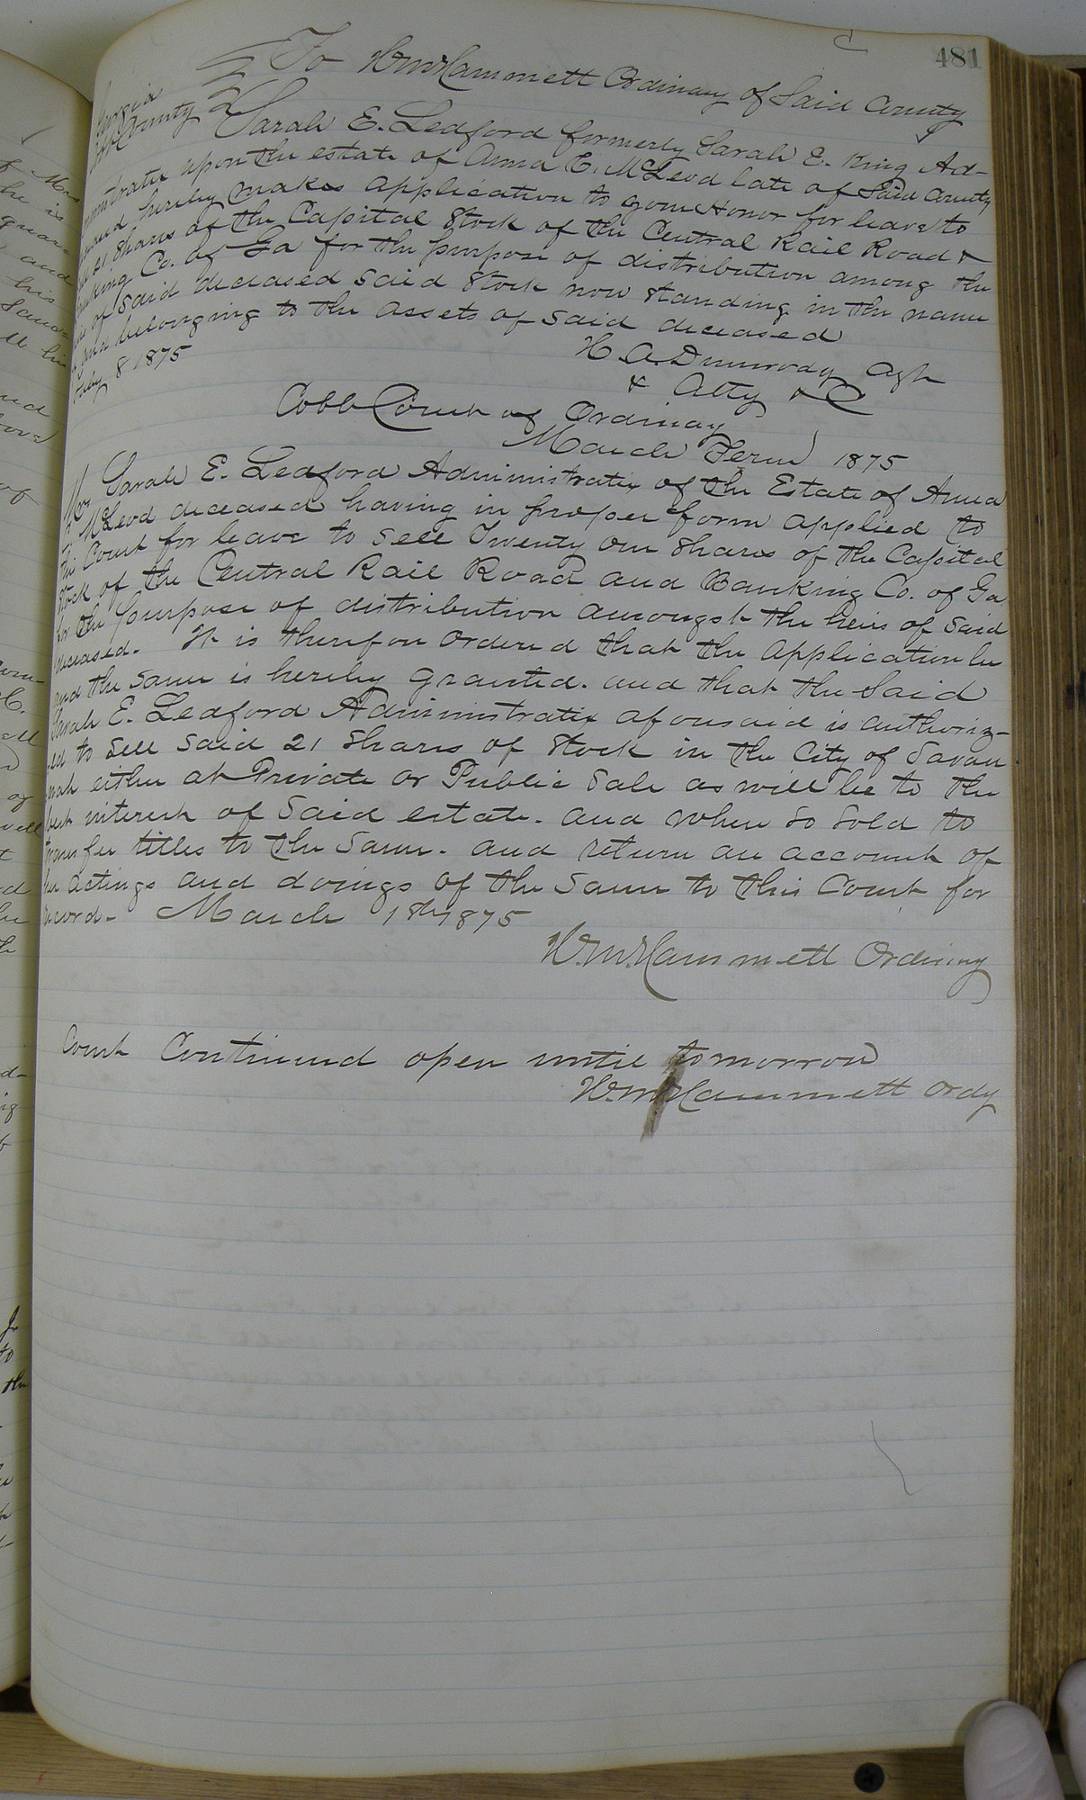 481
To Wm Hammett Ordinary of Said County
Georgia
Cobb County
Sarah E. Ledford formerly Sarah E. King Ad-
ministratrix upon the estate of Anna C. McLeod late of Said County
hereby makes application to your Honor for leave to
21 Shares of the Capital Stock of the Central Rail Road &
Banking Co. of Ga for the purpose of distribution among the
of Said deceased Said Stock now standing in the name
belonging to the assets of Said deceased
July 8 1875
H. A. Dunwody Agt
& Atty &C
Cobb Court of Ordinary
March Term 1875
Mrs Sarah E. Ledford Administratrix of the Estate of Anna
C. McLeod deceased having in proper form applied to
the Court for leave to Sell Twenty one Shares of the Capital
Stock of the Central Rail Road and Banking Co. of Ga
for the purpose of distribution amongst the heirs of Said
deceased. It is therefore Ordered that the Application be
and the Same is hereby granted. and that the Said
Sarah E. Ledford Administratrix aforesaid is authoriz-
ed to Sell Said 21 Shares of Stock in the City of Savan
nah either at Private or Public Sale as will be to the
best interest of Said estate. and when So Sold to
transfer titles to the Same. and return an account of
her actings and doings of the Same to this Court for
record. March 1st 1875
Wm Hammett Ordinary
Court Continued open until tomorrow
Wm Hammett Ordy